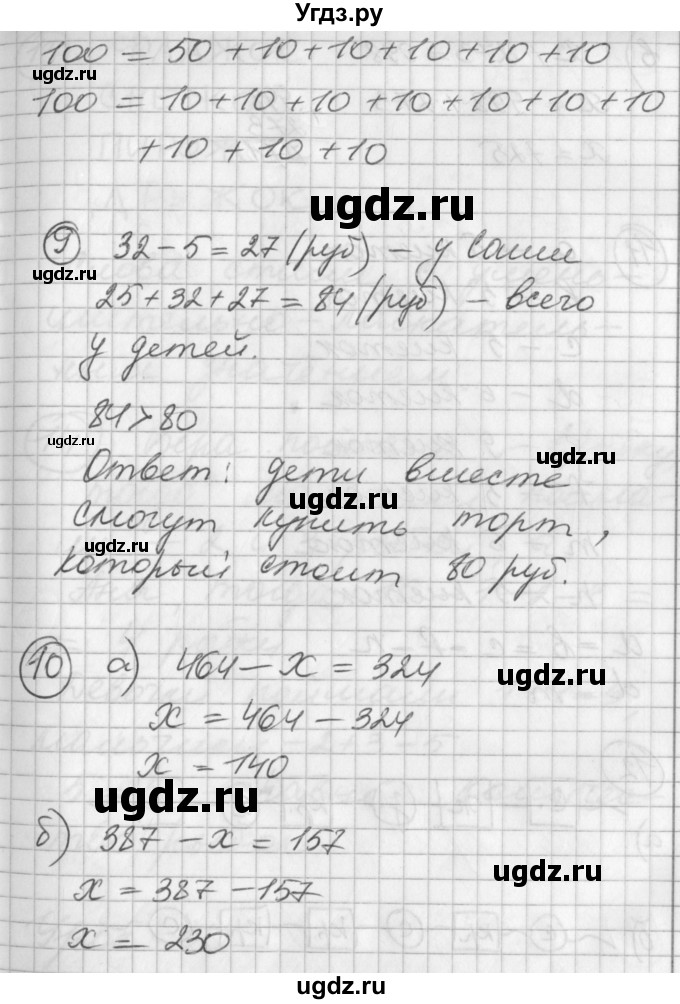 Угдз.ру
100 = 50 + 10 + 10 + 10 + 10 + 10
ugdz.ru
100 = 10 + 10 + 10 + 10 + 10 + 10 + 10
+ 10 + 10 + 10
ugdz.ru
ugdz.ru
9 32 - 5 = 27 (руб) - у Саши
ugdz.ru
25 + 32 + 27 = 84 (руб) - всего
у детей.
84 > 80
ugdz.ru
Ответ: дети вместе
ugdz.ru
ugdz.ru
смогут купить торт,
ugdz.ru
который стоит 80 руб.
10 а) 464 - x = 324
ugdz.ru
x = 464 - 324
x = 140
ugdz.ru
б) 387 - x = 157
ugdz.ru
x = 387 - 157
x = 230
ugdz.ru